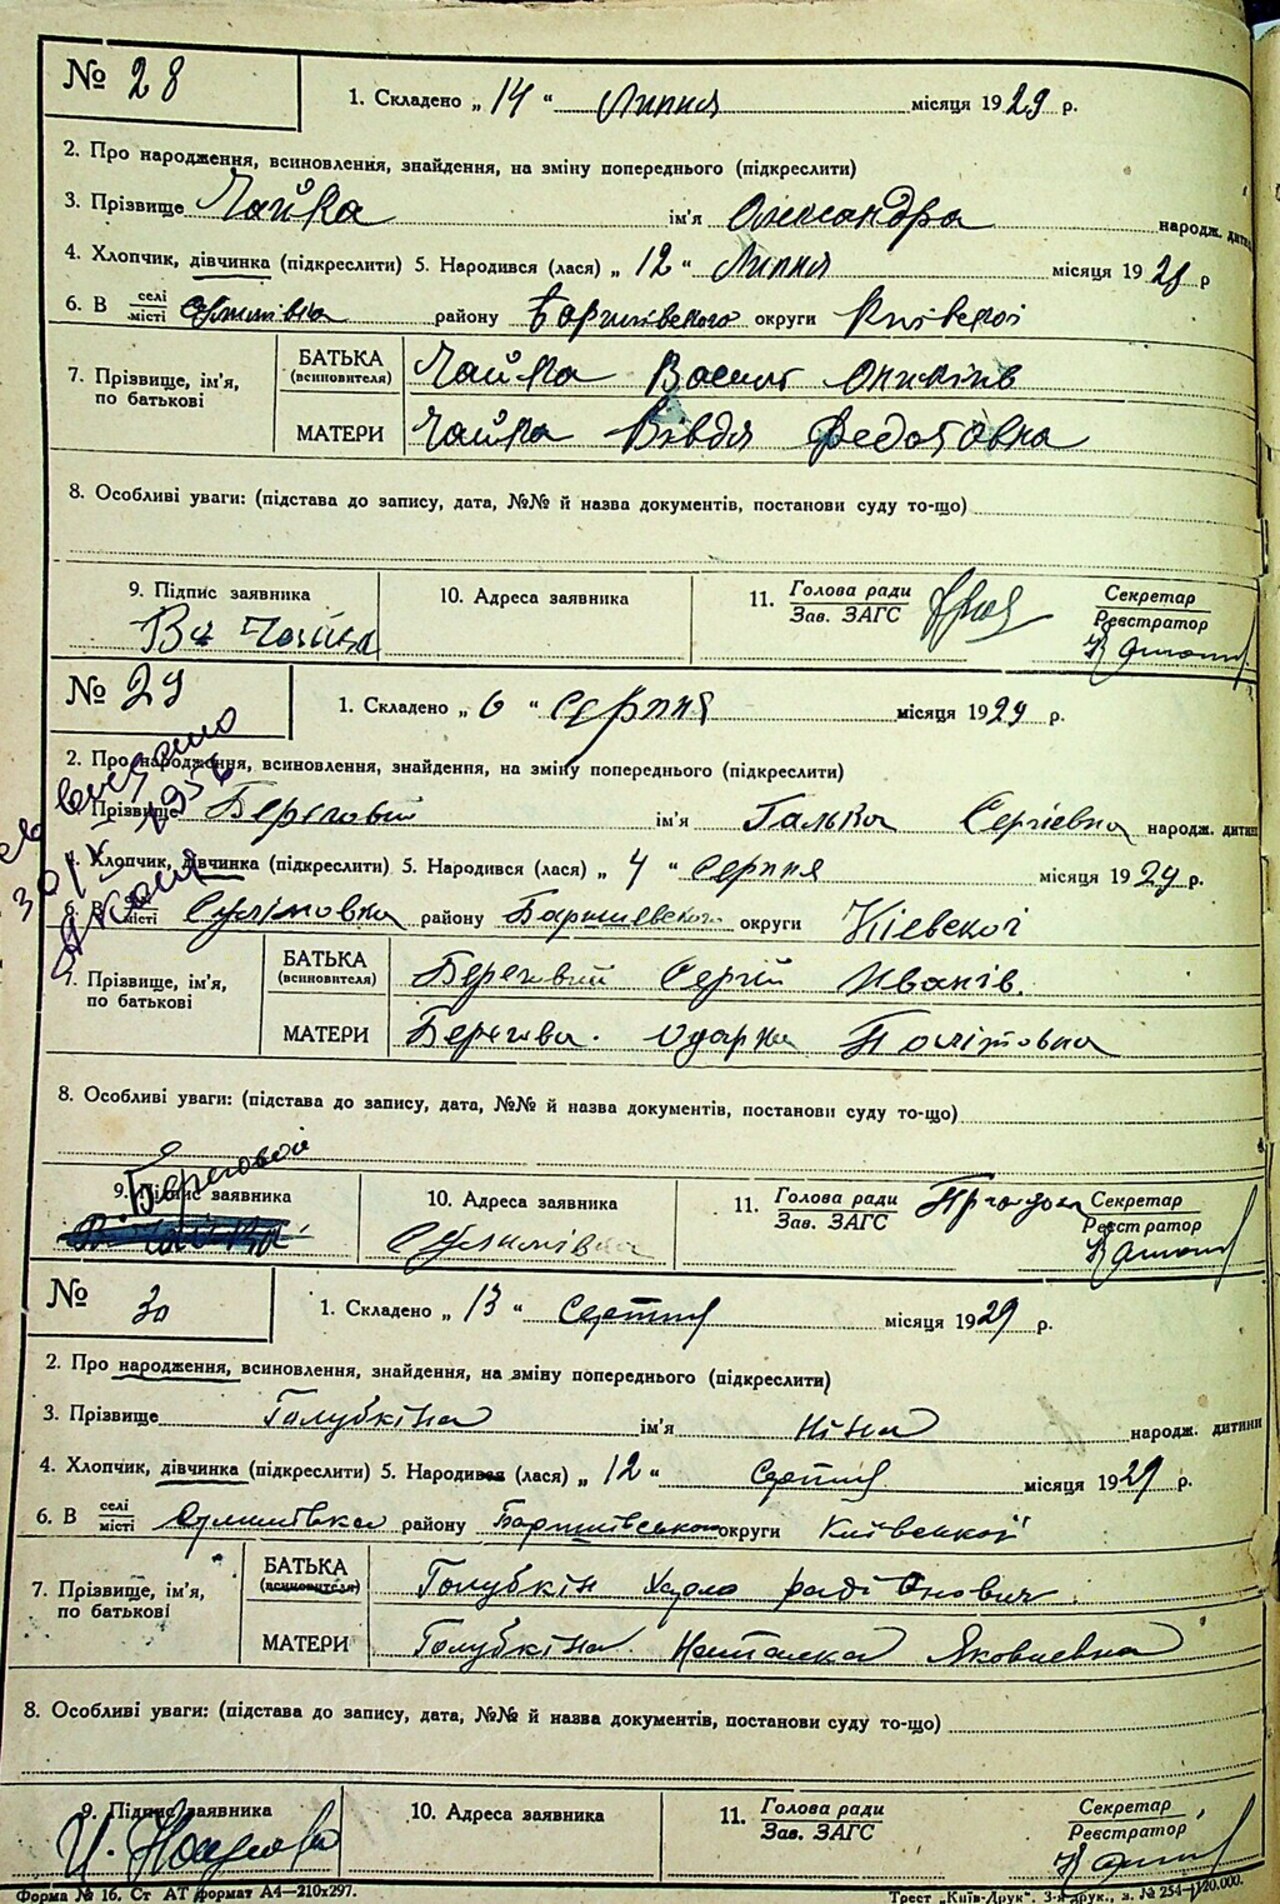 № 28
1. Складено „ 14 “ Липня місяця 1929 р.
2. Про народження, всиновлення, знайдення, на зміну попереднього (підкреслити)
3. Прізвище Чайка ім'я Олександра народж. дитини
4. Хлопчик, дівчинка (підкреслити) 5. Народився (лася) „ 12 “ Липня місяця 1928 р
6. В селі/місті району округи Київскої
7. Прізвище, ім'я, по батькові
БАТЬКА (всиновителя) Чайка Василь
МАТЕРИ Чайка Вівдя Федотовна
8. Особливі уваги: (підстава до запису, дата, №№ й назва документів, постанови суду то-що)
9. Підпис заявника 10. Адреса заявника 11. Голова ради Зав. ЗАГС Секретар Реєстратор
Чайка
№ 29
1. Складено „ 6 “ Серпня місяця 1929 р.
2. Про народження, всиновлення, знайдення, на зміну попереднього (підкреслити)
3. Прізвище Береговий ім'я Галька Сергіевна народж. дитини
4. Хлопчик, дівчинка (підкреслити) 5. Народився (лася) „ 4 “ Серпня місяця 1929 р.
6. В селі/місті Сулімовка району округи Кіевскої
7. Прізвище, ім'я, по батькові
БАТЬКА (всиновителя) Береговий Сергій Иванів.
МАТЕРИ Берегова. Одарка
8. Особливі уваги: (підстава до запису, дата, №№ й назва документів, постанови суду то-що)
Береговой
9. Підпис заявника 10. Адреса заявника 11. Голова ради Зав. ЗАГС Секретар Реєстратор
В. Чайка Сулимівка
№ 30
1. Складено „ 13 “ Серпня місяця 1929 р.
2. Про народження, всиновлення, знайдення, на зміну попереднього (підкреслити)
3. Прізвище Голубкіна ім'я Ніна народж. дитини
4. Хлопчик, дівчинка (підкреслити) 5. Народився (лася) „ 12 “ Серпня місяця 1929 р.
6. В селі/місті Сулимівка району округи Київської
7. Прізвище, ім'я, по батькові
БАТЬКА (всиновителя) Голубкін
МАТЕРИ Голубкіна. Наталка Яковлевна
8. Особливі уваги: (підстава до запису, дата, №№ й назва документів, постанови суду то-що)
9. Підпис заявника 10. Адреса заявника 11. Голова ради Зав. ЗАГС Секретар Реєстратор
Форма № 16. Ст АТ формат А4—210х297. Трест „Київ-Друк“. 3-я друк., з. № 254—120.000.